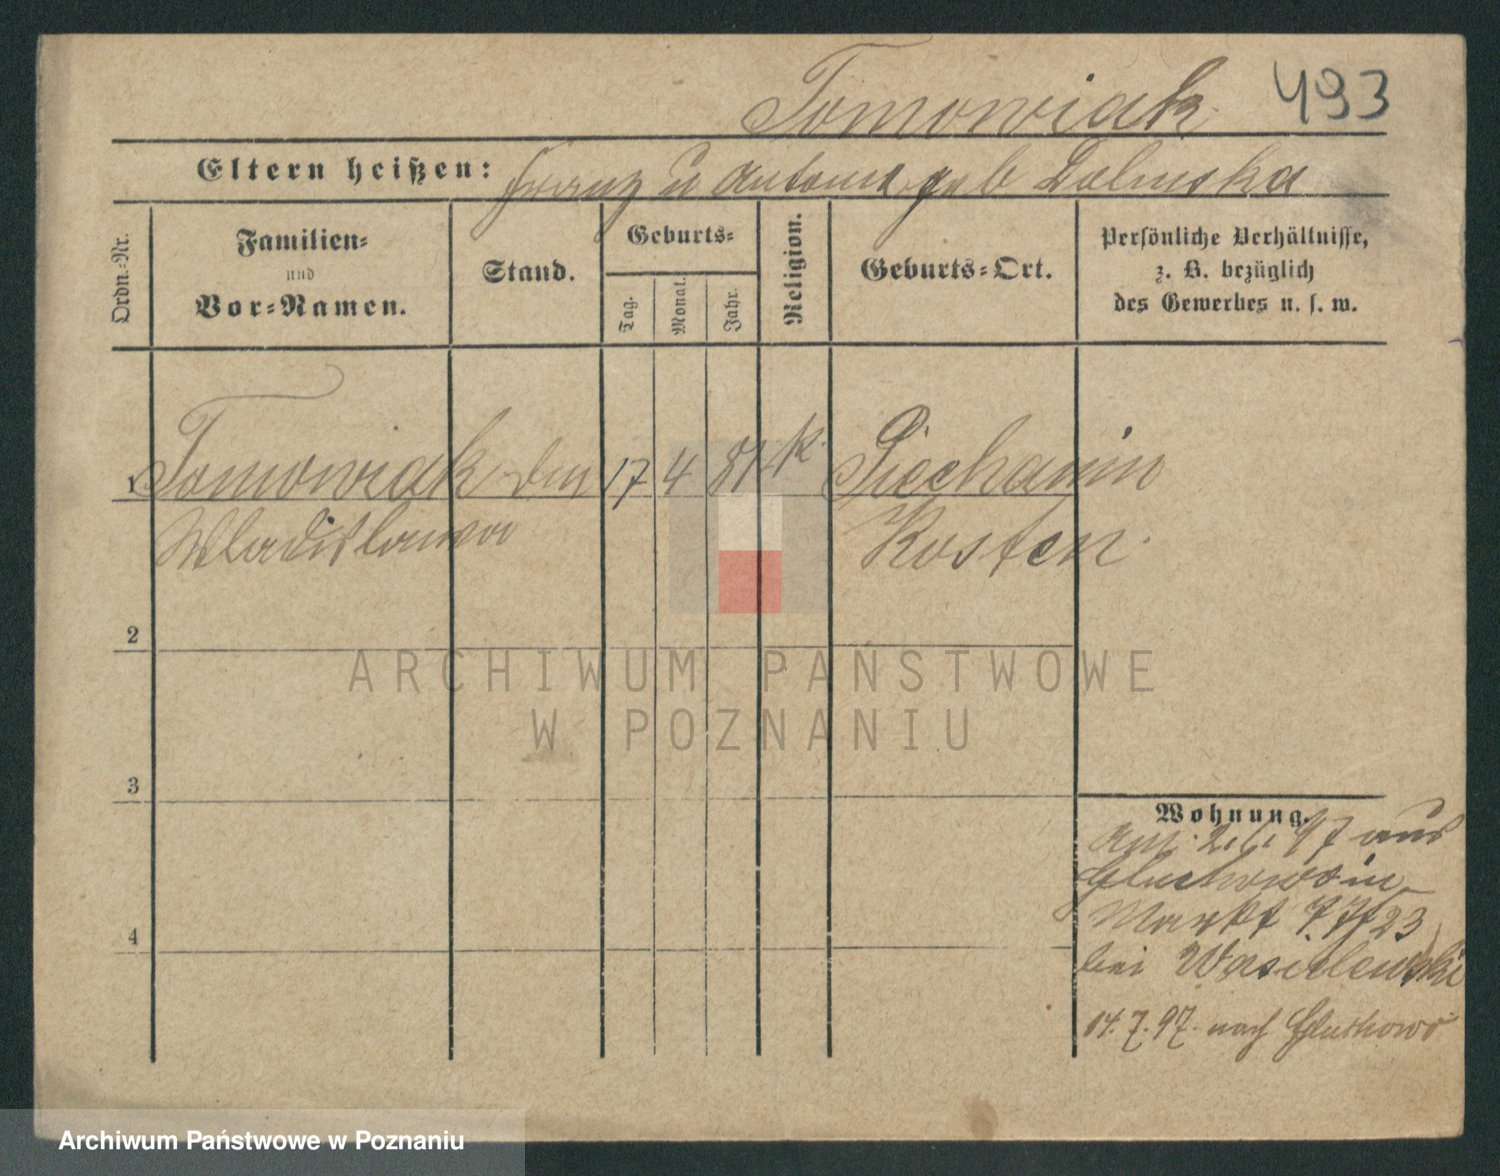 Tomowiak 493
Eltern heißen: Franz u Antonie geb Dolinska
Ordn.-Nr.
Familien-
und
Vor-Namen.
Stand.
Geburts-
Tag.
Monat.
Jahr.
Religion.
Geburts-Ort.
Persönliche Verhältnisse,
z. B. bezüglich
des Gewerbes u. s. w.
1 Tomowiak 17 4 81 k. Piechanin
Wladislawa Kosten.
2
3
4
Wohnung.
am 2. 6. 97 aus
Markt 23
bei
14. 7. 97. nach Gluchowo
ARCHIWUM PAŃSTWOWE
W POZNANIU
Archiwum Państwowe w Poznaniu